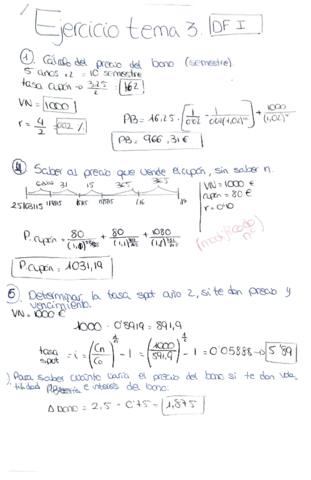 Ejercicio tema 3. DF I
① Cálculo del precio del bono (semestre)
5 años . 2 = 10 semestre
tasa cupón → 3,25 / 2 = 1'62
VN = 1000
r = 4 / 2 = 0'02 %
PB = 16.25 · [1 / 0'02 - 1 / 0'02(1,02)¹⁰] + 1000 / (1,02)¹⁰
PB = 966,31 €
④ Saber al precio que vende el cupón, sin saber n.
31 15 365 365
VN = 1000 €
cupón = 80 €
r = 0'10
P. cupón = 80 / (1,1) + 80 / (1,1) + 1080 / (1,1)
(modificado n)
P. cupón = 1031,19
⑤ Determinar la tasa spot año 2, si te dan precio y
vencimiento.
VN = 1000 €
1000 · 0'8919 = 891,9
tasa spot = i = (Cn / Co)^½ - 1 = (1000 / 891.9)^½ - 1 = 0'05888 → 5'89
) Para saber cuánto varía el precio del bono si te dan vola-
tilidad e interés del bono:
Δ Bono = 2.5 - 0'75 = 1,875